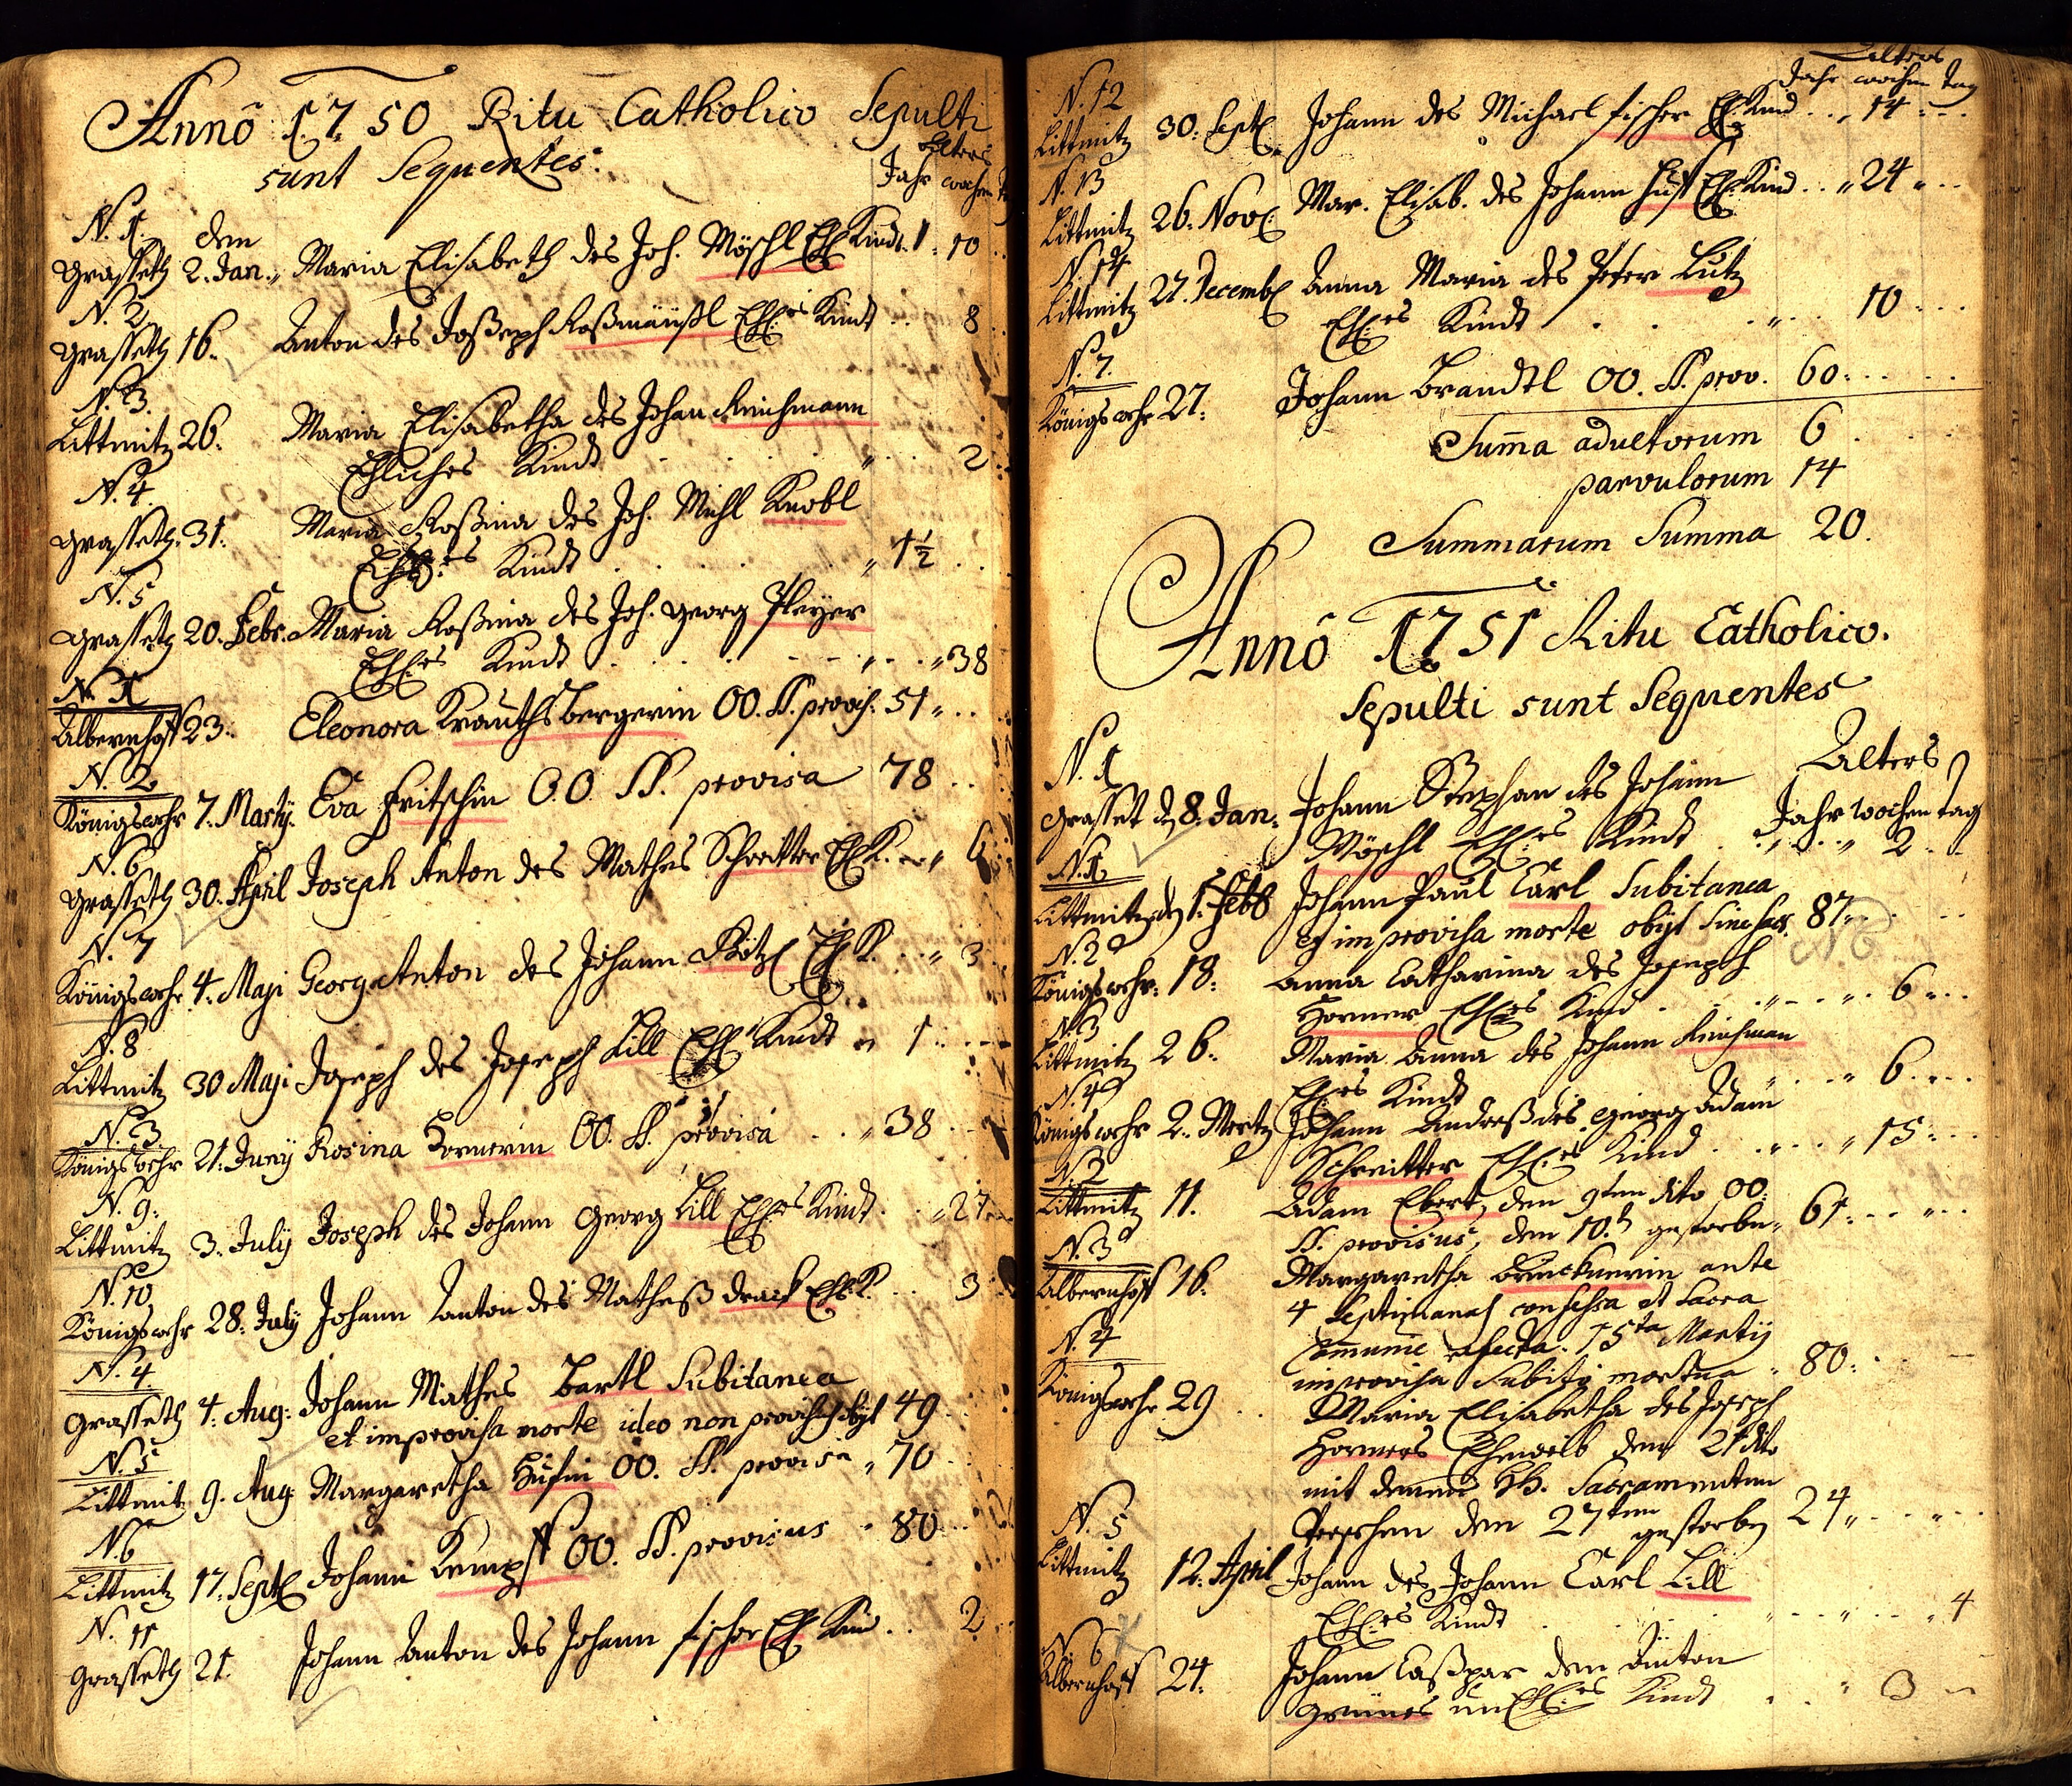 Anno 1750 Ritu Catholico Sepulti
sunt Sequentes.
Alters
Jahr wochen
N. 1. dem
Grasseth 2. Jan. Maria Elisabeth des Joh. Möschl Ehl Kindt. 1. 10
N. 2
Grasseth 16. Anton des Joßeph Roßmäußl Ehl:es Kindt 8
N. 3.
Littmitz 26. Maria Elisabetha des Johan Reichmann
Ehliches Kindt 2
N. 4.
Grasseth 31. Maria Roßina des Joh. Michl Knobl
Ehl:es Kindt 1½
N. 5
Grasseth 20. Febr. Maria Roßina des Joh. Georg Pleyer
Ehl:es Kindt 38
N. 1
Albernhoff 23. Eleonora Krauthsbergerin OO. SS. provis. 51
N. 2
Königswehr 7. Marty. Eva Fritschin O.O. SS. provisa 78
N. 6
Grasseth 30. April Joseph Anton des Mathes Schreitter Ehl K. 6
N. 7
Königswehr 4. Maji Georg Anton des Johann Ehl K. 3
N. 8
Littmitz 30 Maji Joseph des Joseph Lill Ehl Kindt 1
N. 3
Königswehr 21. Juny Rosina Hornerin OO. SS. provisa 38
N. 9.
Littmitz 3. July Joseph des Johann Georg Lill Ehl:es Kindt 27
N. 10
Königswehr 28. July Johann Anton des Matheß Ehl: K. 3
N. 4
Grasseth 4. Aug: Johann Mathes Bartl Subitanea
et improvisa morte ideo non provisus obyt 49
N. 5
Littmitz 9. Aug Margaretha OO. SS. provisa 70
N. 6
Littmitz 17. Sept Johann Kempff OO. SS. provisus 80
N. 11
Grasseth 21. Johann Anton des Johann fischer Ehl Kind 2
Alters
Jahr wochen Tag
N. 12
Littmitz 30. Sept Johann des Michael fischer Ehl Kind 14
N. 13
Littmitz 26. Nov Mar. Elisab. des Johann Ehl Kind 24
N. 14
Littmitz 27. Decemb Anna Maria des Peter Lutz
Ehl:es Kindt 10
N. 7.
Königswehr 27. Johann Brandtl OO. SS. prov. 60
Summa adultorum 6
parvulorum 14
Summarum Summa 20.
Anno 1751 Ritu Catholico.
Sepulti sunt Sequentes
Alters
N. 1
Grasset d 8. Jan. Johann Stephan des Johann
Jahr wochen tag
Möschl Ehl:es Kindt 2
N. 1
Littmitz den 1. Feb Johann Paul Carl Subitanea
et improvisa morte obyt sine sac. 87
N. 2
Königswehr 18. Anna Catharina des Joseph
N 6
Horner Ehl:es Kind 6
N. 3
Littmitz 26. Maria Anna des Johann Reichman
Ehl:es Kindt 6
N. 4
Königswehr 2. Mertz Johann Andreß des Georg Adam
Schreitter Ehl:es Kind 15
N. 2
Littmitz 11. Adam Ebert, den 9ten dito OO.
SS. provisus, dem 10. gestorben 61
N. 3
Albernhoff 16. Margaretha Brucknerin ante
4 Septimanas confessa et sacra
Communie refecta. 15ta Martij
improvisa Subito mortua 80
N. 4
Königswehr 29 Maria Elisabetha des Joseph
Horners Eheweib dem 21 dito
mit denen hh. Sacramenten
Versehen dem 27ten gestorben 24
N. 5
Littmitz 12. April Johann des Johann Carl Lill
Ehl:es Kindt 4
N. 6
Albernhoff 24. Johann Caßpar dem Anton
Grünes unEhl:es Kindt 3